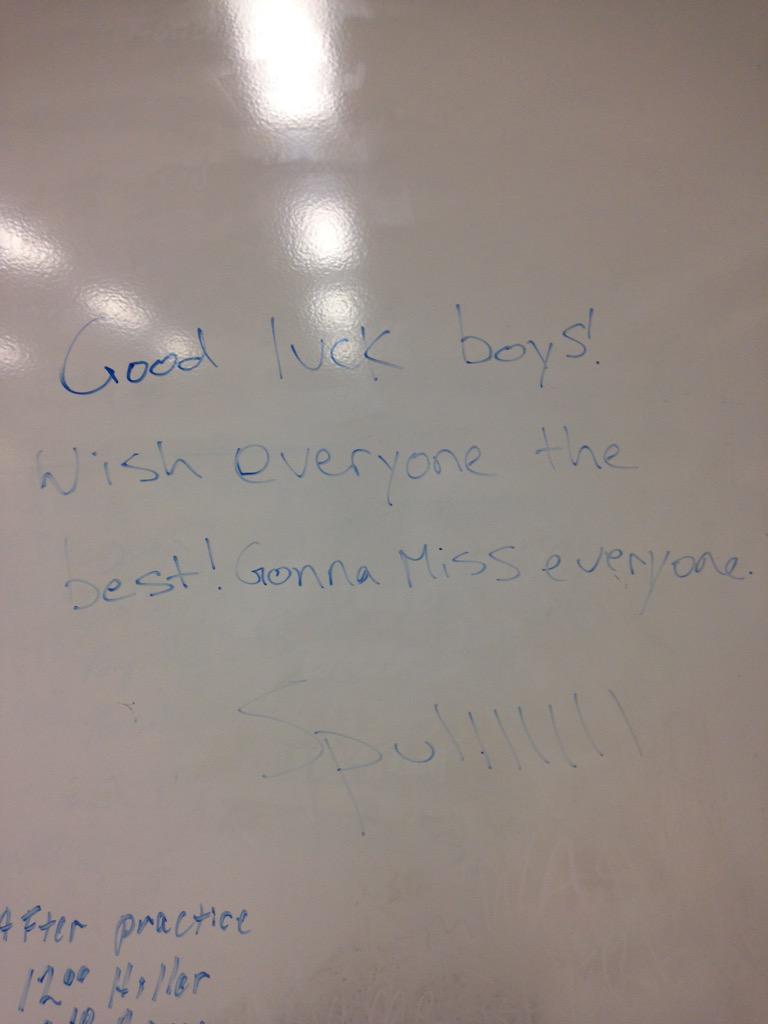 Good luck boys!
Wish everyone the
best! Gonna Miss everyone.
Spulllllll
After practice
12⁰⁰ Hiller